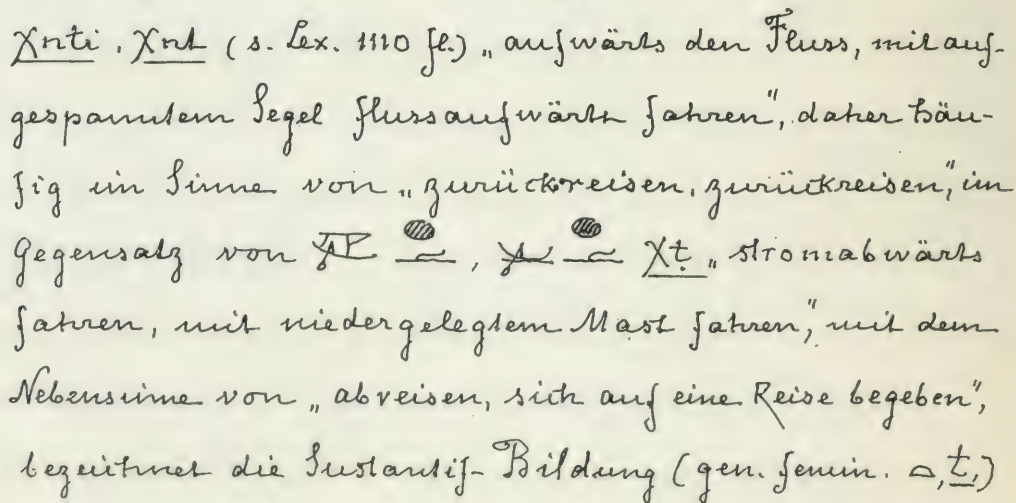 χnti, χnt (s. Lex. 1110 fl.) „aufwärts den Fluss, mit auf-
gespanntem Segel flussaufwärts fahren", daher häu-
fig im Sinne von „zurückreisen, zurückreisen", im
Gegensatz von , χṭ „stromabwärts
fahren, mit niedergelegtem Mast fahren," mit dem
Nebensinne von „abreisen, sich auf eine Reise begeben",
bezeichnet die Sustantif-Bildung (gen. femin. 𓏏, ṭ,)